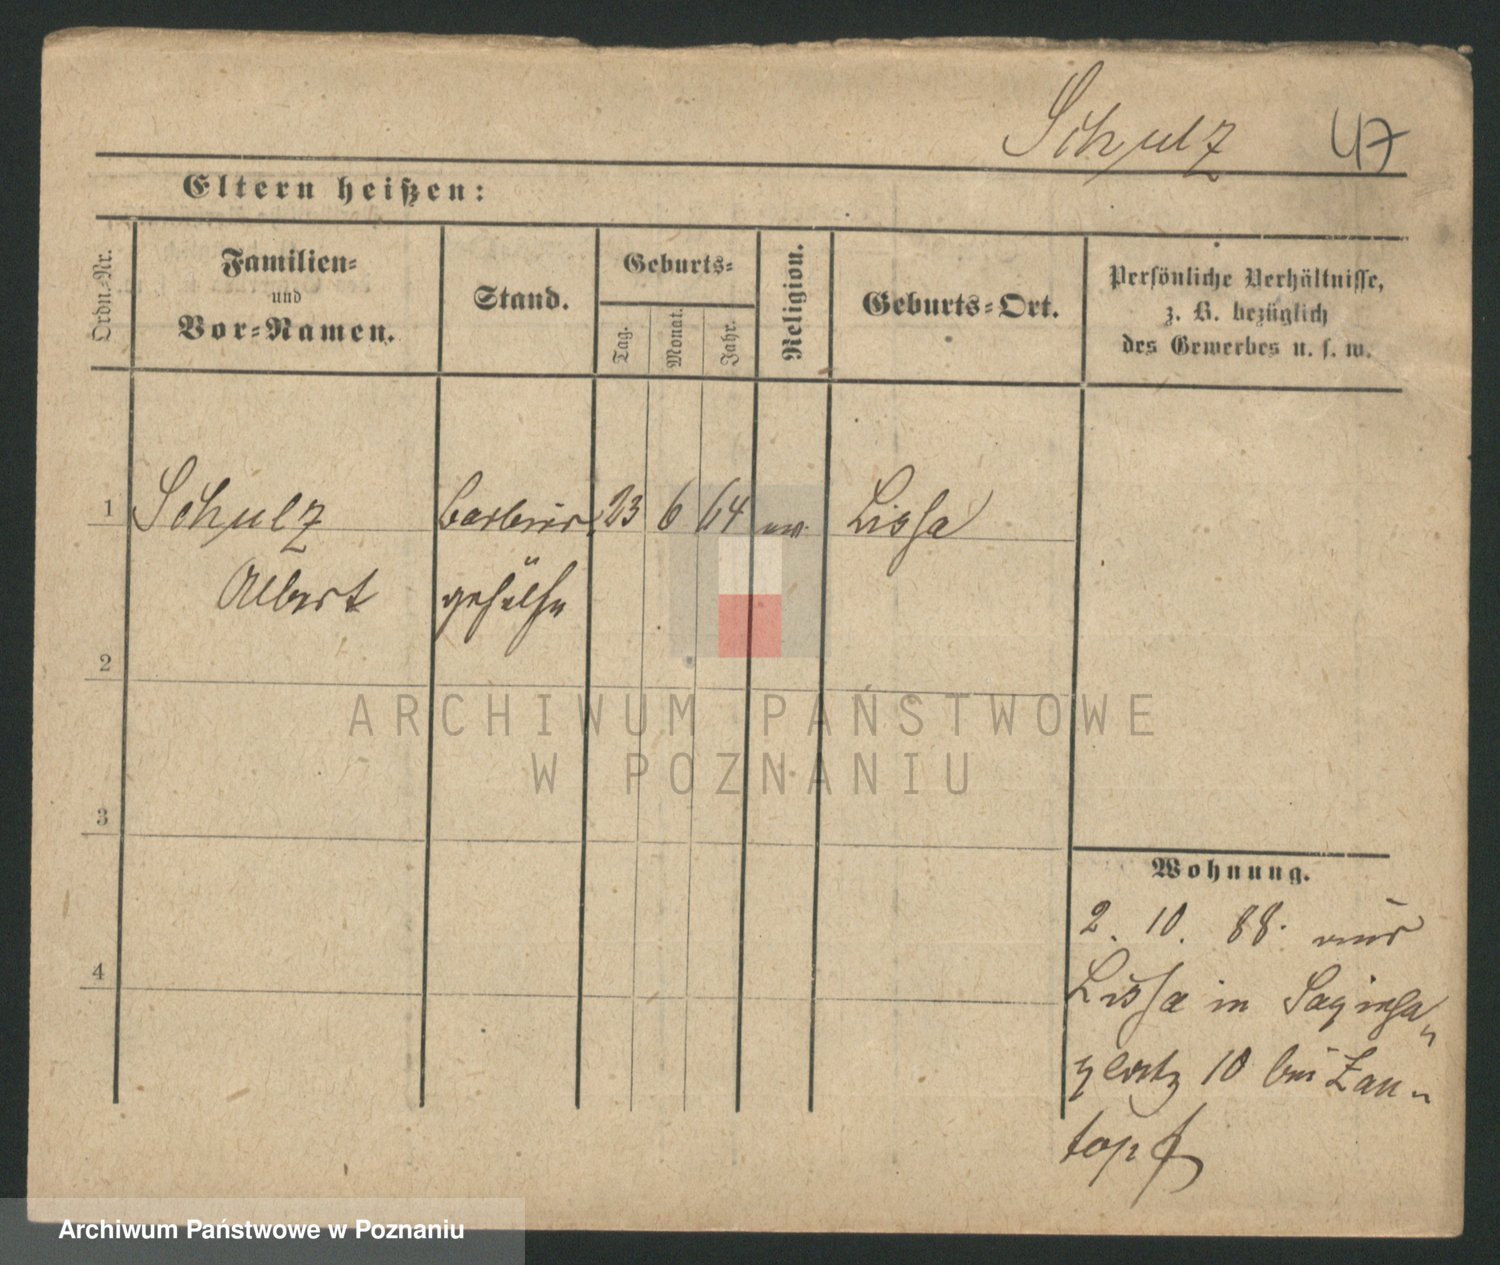 Schulz 47
Eltern heißen:
Ordn.-Nr.
Familien-
und
Vor-Namen.
Stand.
Geburts-
Tag.
Monat.
Jahr.
Religion.
Geburts-Ort.
Persönliche Verhältnisse,
z. B. bezüglich
des Gewerbes u. s. w.
1 Schulz Barbier 23 6 64 ev. Lissa
Albert gehülfe
2
3
4
Wohnung.
2. 10. 88. aus
Lissa in Sapieha
platz 10 bei Zan-
topf
ARCHIWUM PAŃSTWOWE
W POZNANIU
Archiwum Państwowe w Poznaniu